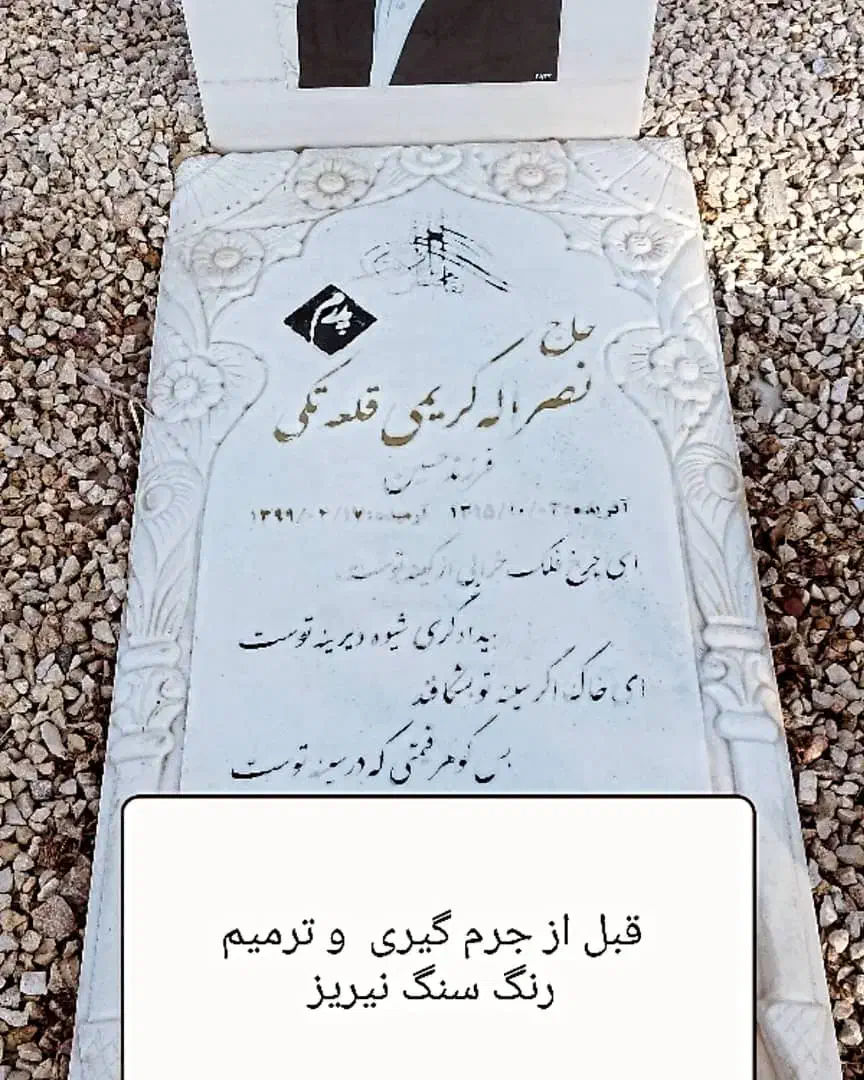 پدرم
حاج
نصراله کریمی قلعه تکی
فرزند حسین
آفریده: ۱۳۱۵/۱۰/۰۳ آرمیده: ۱۳۹۹/۰۲/۱۷
ای چرخ فلک خرابی از کینه توست
بیدادگری شیوه دیرینه توست
ای خاک اگر سینه تو بشکافند
بس گوهر قیمتی که در سینه توست
قبل از جرم گیری و ترمیم
رنگ سنگ نیریز